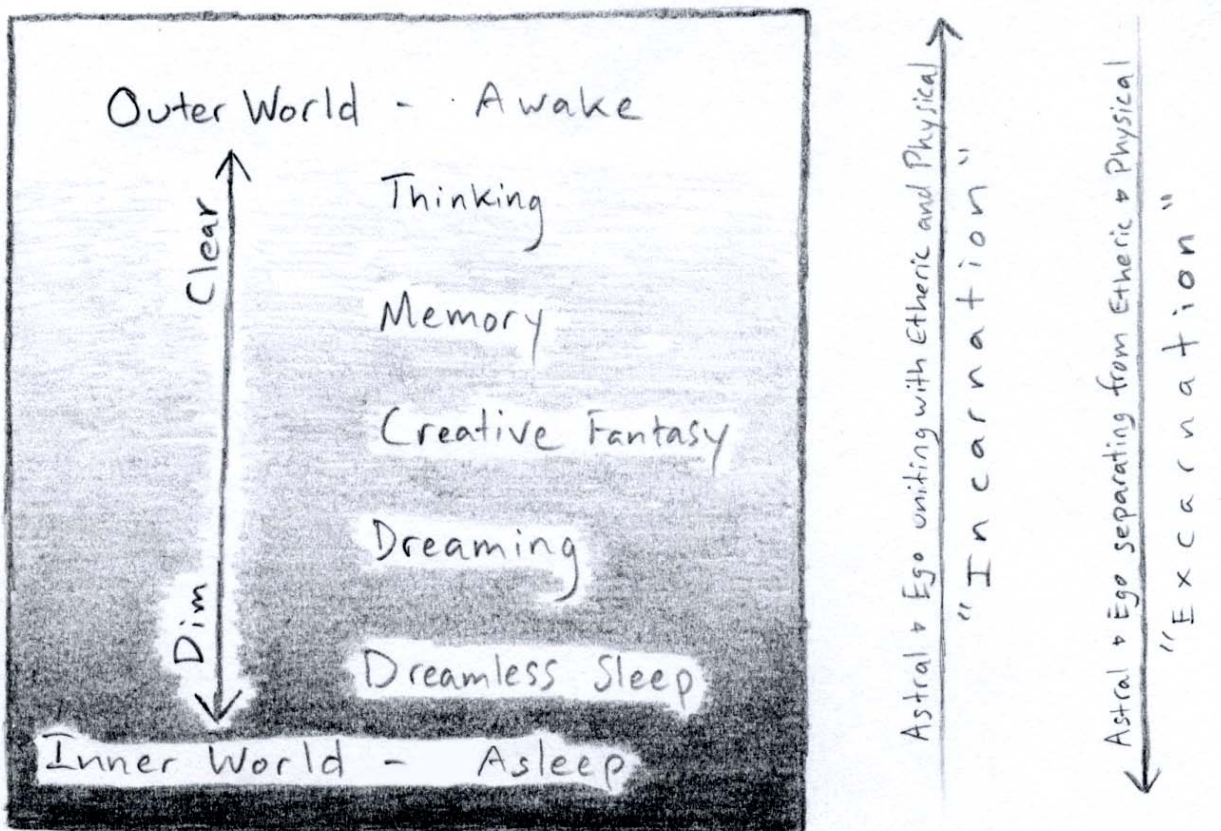 Outer World - Awake
Clear
Thinking
Memory
Creative Fantasy
Dreaming
Dim
Dreamless Sleep
Inner World - Asleep
Astral & Ego uniting with Etheric and Physical
"Incarnation"
Astral & Ego separating from Etheric & Physical
"Excarnation"